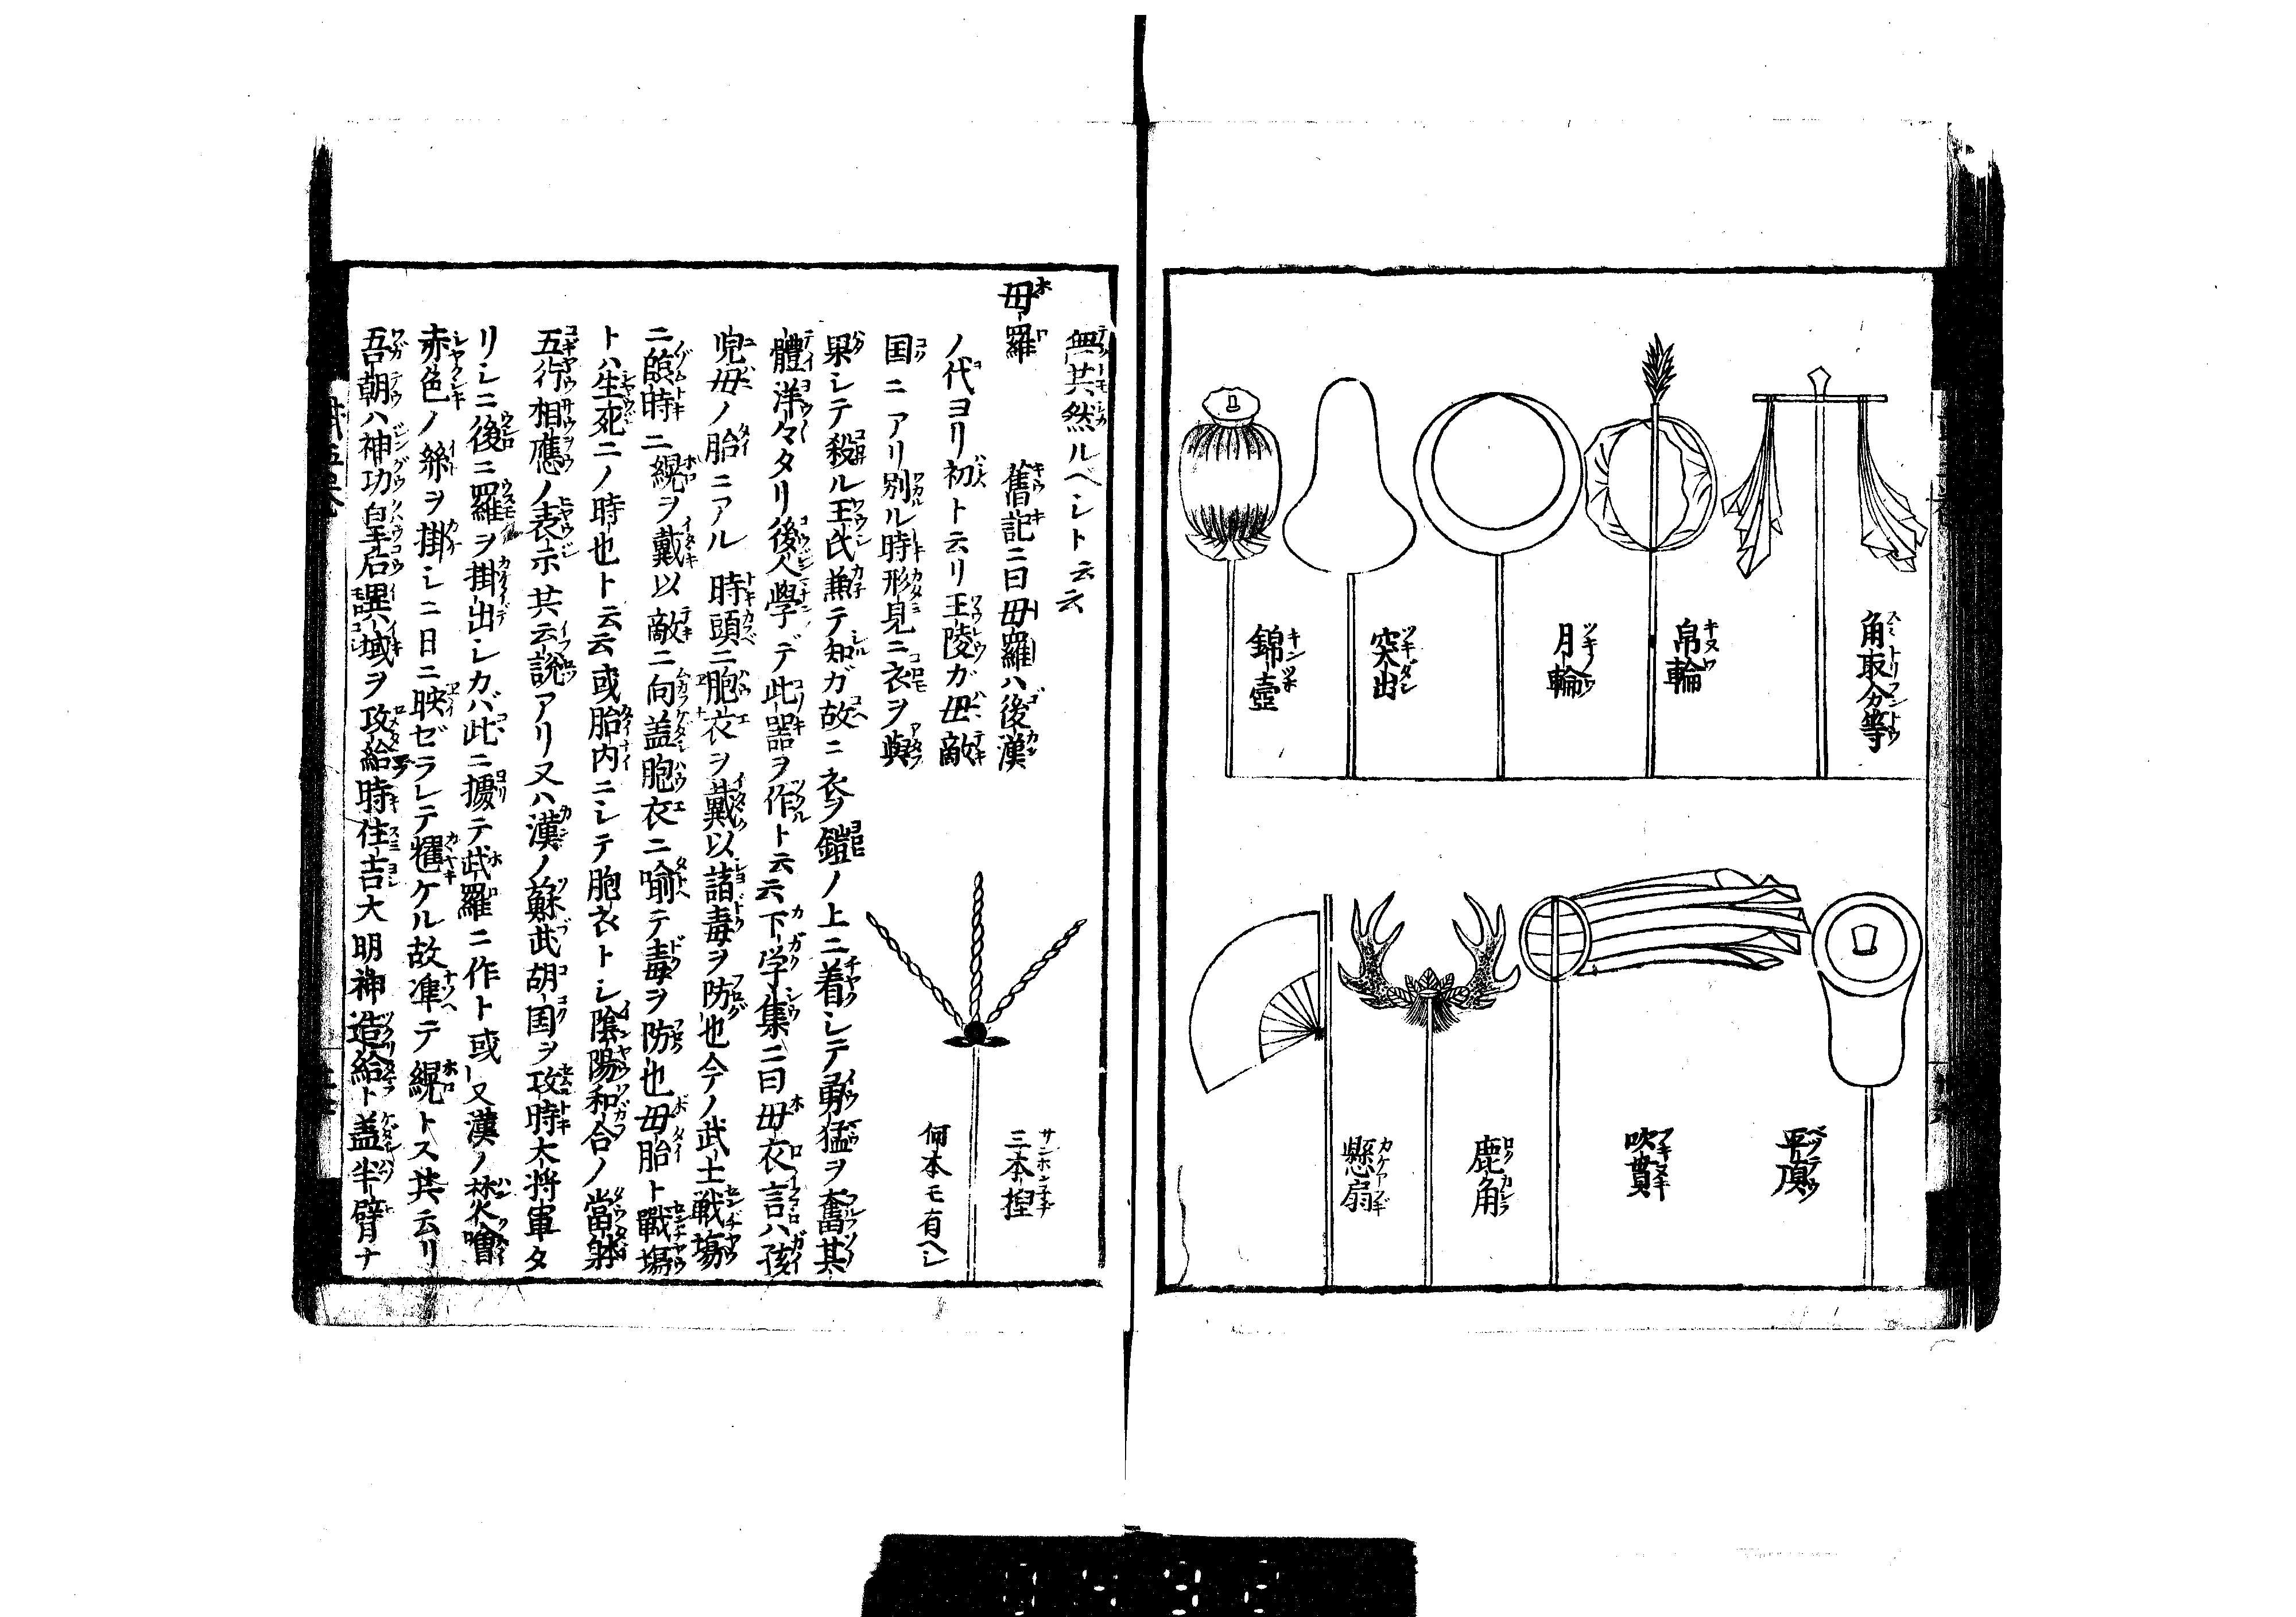 角取
帛輪
月輪
突出
錦壺
平頂
吹貫
鹿角
懸扇
無其然ルベシト云云
母羅 舊記ニ曰母羅ハ後漢
ノ代ヨリ初ト云リ王陵カ母敵
国ニアリ別ル時形見ニ衣ヲ與
果シテ殺ル王氏兼テ知ガ故ニ衣ヲ鎧ノ上ニ着シテ勇猛ヲ奮其
體洋々タリ後人學デ此器ヲ作ト云云下学集ニ曰母衣言ハ孩
児母ノ胎ニアル時頭ニ胞衣ヲ戴以諸毒ヲ防也今ノ武士戦場
ニ臨時ニ縨ヲ戴以敵ニ向盖胞衣ニ喩テ毒ヲ防也母胎ト戰場
トハ生死二ノ時也ト云云或胎内ニシテ胞衣トシ陰陽和合ノ當躰
五行相應ノ表示共云説アリ又ハ漢ノ蘇武胡国ヲ攻時大将軍タ
リシニ後ニ羅ヲ掛出シカバ此ニ據テ武羅ニ作ト或又漢ノ樊噲
赤色ノ絲ヲ掛シニ日ニ映ゼラレテ耀ケル故准テ縨トス共云リ
吾朝ハ神功皇后異域ヲ攻給時住吉大明神造給ト盖半臂ナ
三本
何本モ有ヘシ